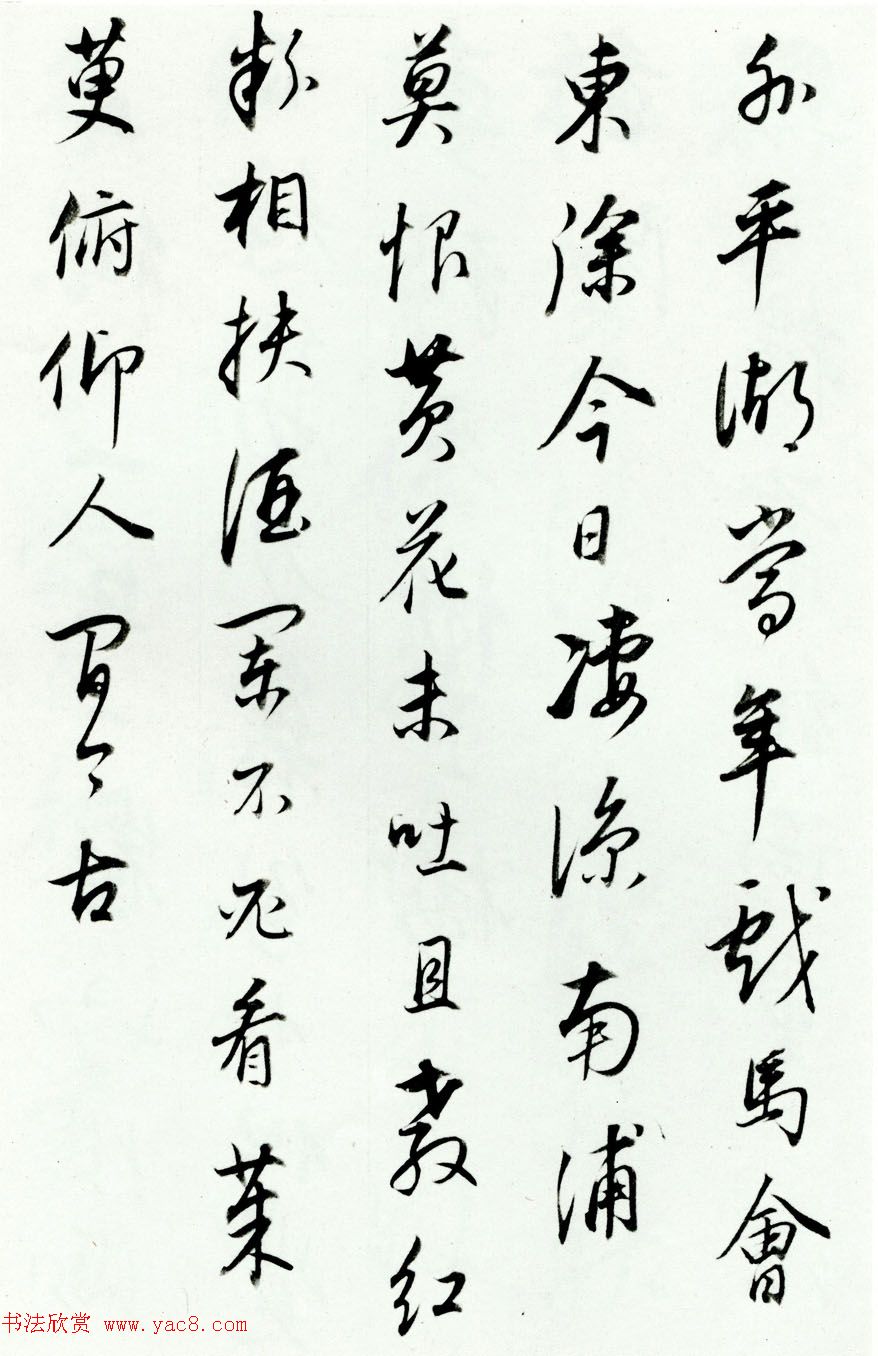 外平湖當年戲馬會
東徐今日凄涼南浦
莫恨黃花未吐且教紅
粉相扶酒闌不必看茱
萸俯仰人間今古
书法欣赏 www.yac8.com